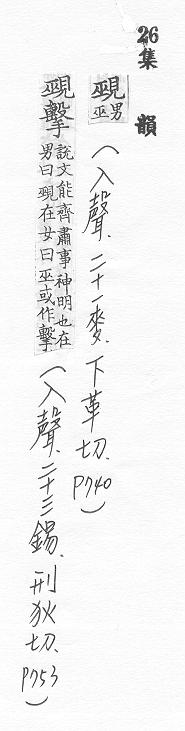 26 集韻
覡 男巫 （入聲．二十一麥．下革切．P740）
覡擊 說文能齊肅事神明也在男曰覡在女曰巫或作擊 （入聲．二十三錫．刑狄切．P753）